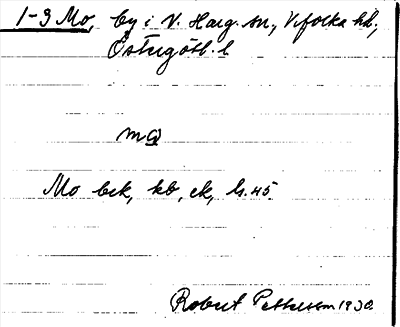 1-3 Mo, by i V. Harg sn., Vifolka hd.,
Östergötl. l
Mo bck, kb, ck, ls. 45.
Robert Pettersson 1930.